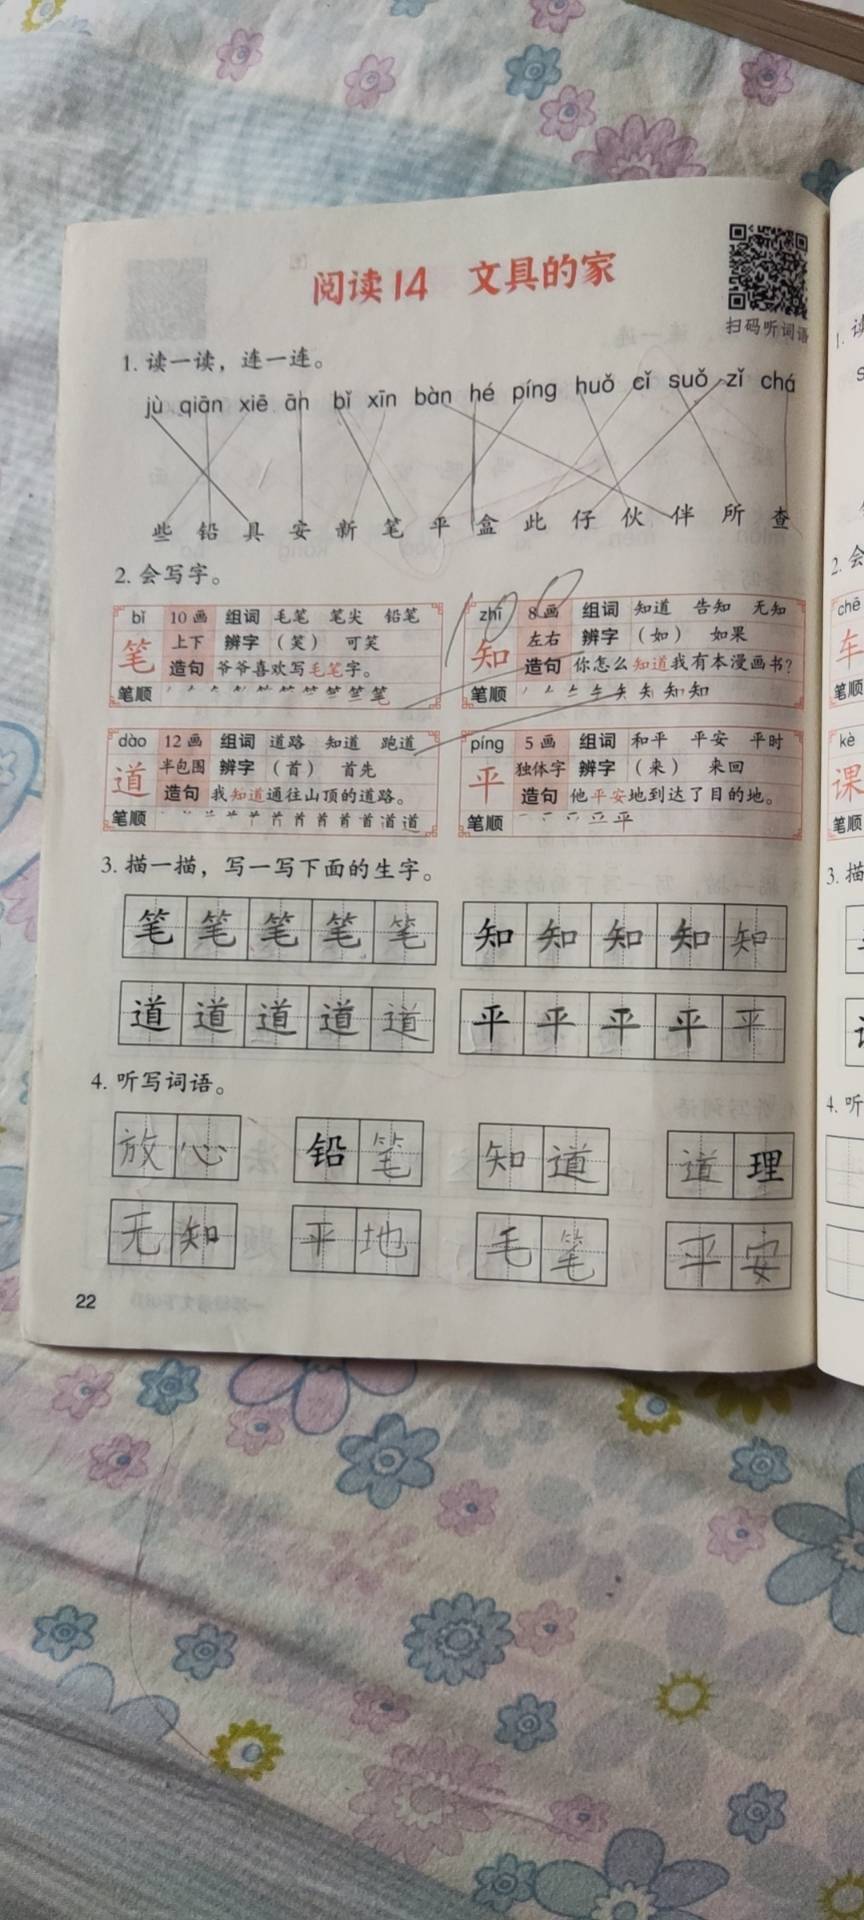 阅读14 文具的家
扫码听词语
1. 读一读，连一连。
jù qiān xiē ān bǐ xīn bàn hé píng huǒ cǐ suǒ zǐ chá
些 铅 具 安 新 笔 平 盒 此 仔 伙 伴 所 查
2. 会写字。
100
bǐ 10画 组词 毛笔 笔尖 铅笔
笔 上下 辨字 （笑） 可笑
造句 爷爷喜欢写毛笔字。
笔顺
zhī 8画 组词 知道 告知 无知
知 左右 辨字 （如） 如果
造句 你怎么知道我有本漫画书？
笔顺
dào 12画 组词 道路 知道 跑道
道 半包围 辨字 （首） 首先
造句 我知道通往山顶的道路。
笔顺
píng 5画 组词 和平 平安 平时
平 独体字 辨字 （来） 来回
造句 他平安地到达了目的地。
笔顺
3. 描一描，写一写下面的生字。
笔 笔 笔 笔 笔 知 知 知 知 知
道 道 道 道 道 平 平 平 平 平
4. 听写词语。
放心 铅笔 知道 道理
无知 平地 毛笔 平安
22
1. 读
2. 会
chē
车
笔顺
kè
课
笔顺
3. 描
4. 听